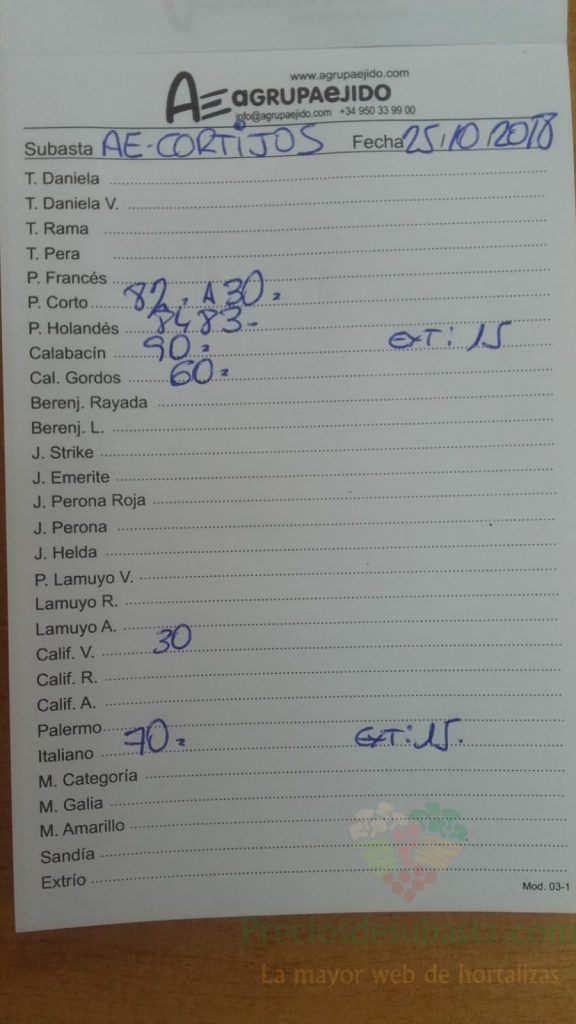 www.agrupaejido.com
AE AGRUPAEJIDO
info@agrupaejido.com +34 950 33 99 00
Subasta AE-CORTIJOS Fecha 25/10/2018
T. Daniela
T. Daniela V.
T. Rama
T. Pera
P. Francés
P. Corto 82, A 30
P. Holandés 84 83-
Calabacín 90 EXT: 15
Cal. Gordos 60
Berenj. Rayada
Berenj. L.
J. Strike
J. Emerite
J. Perona Roja
J. Perona
J. Helda
P. Lamuyo V.
Lamuyo R.
Lamuyo A.
Calif. V. 30
Calif. R.
Calif. A.
Palermo
Italiano 70 EXT: 15.
M. Categoría
M. Galia
M. Amarillo
Sandía
Extrío
Mod. 03-1
Preciosdesubasta.com
La mayor web de hortalizas